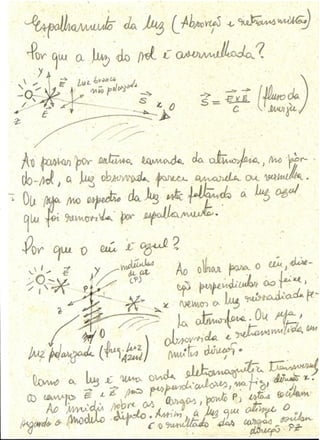 Espalhamento da luz (Absorção e retransmissão)
Por que a luz do sol é avermelhada?
Luz branca
não polarizada
S = E x B / C (fluxo da energia)
Ao passar por extensa camada da atmosfera, no pôr-
do-sol, a luz observada parece amarela ou vermelha.
Ou seja no espectro da luz está faltando a luz azul
que foi removida por espalhamento.
Por que o céu é azul?
moléculas
de ar
(P)
Ao olhar para o céu, dire-
ção perpendicular ao feixe,
vemos a luz reirradiada pe-
la atmosfera. Ou seja,
absorvida e retransmitida em
muitas direções.
Luz polarizada (freq. luz azul)
Como a luz é uma onda eletromagnética transversal
os campos E e B são perpendiculares, na fig. direção x.
Ao incidir sobre as cargas, ponto P, estas oscilam
segundo o modelo dipolo. Assim, a luz que atinge O
é o resultado das cargas
direção PZ